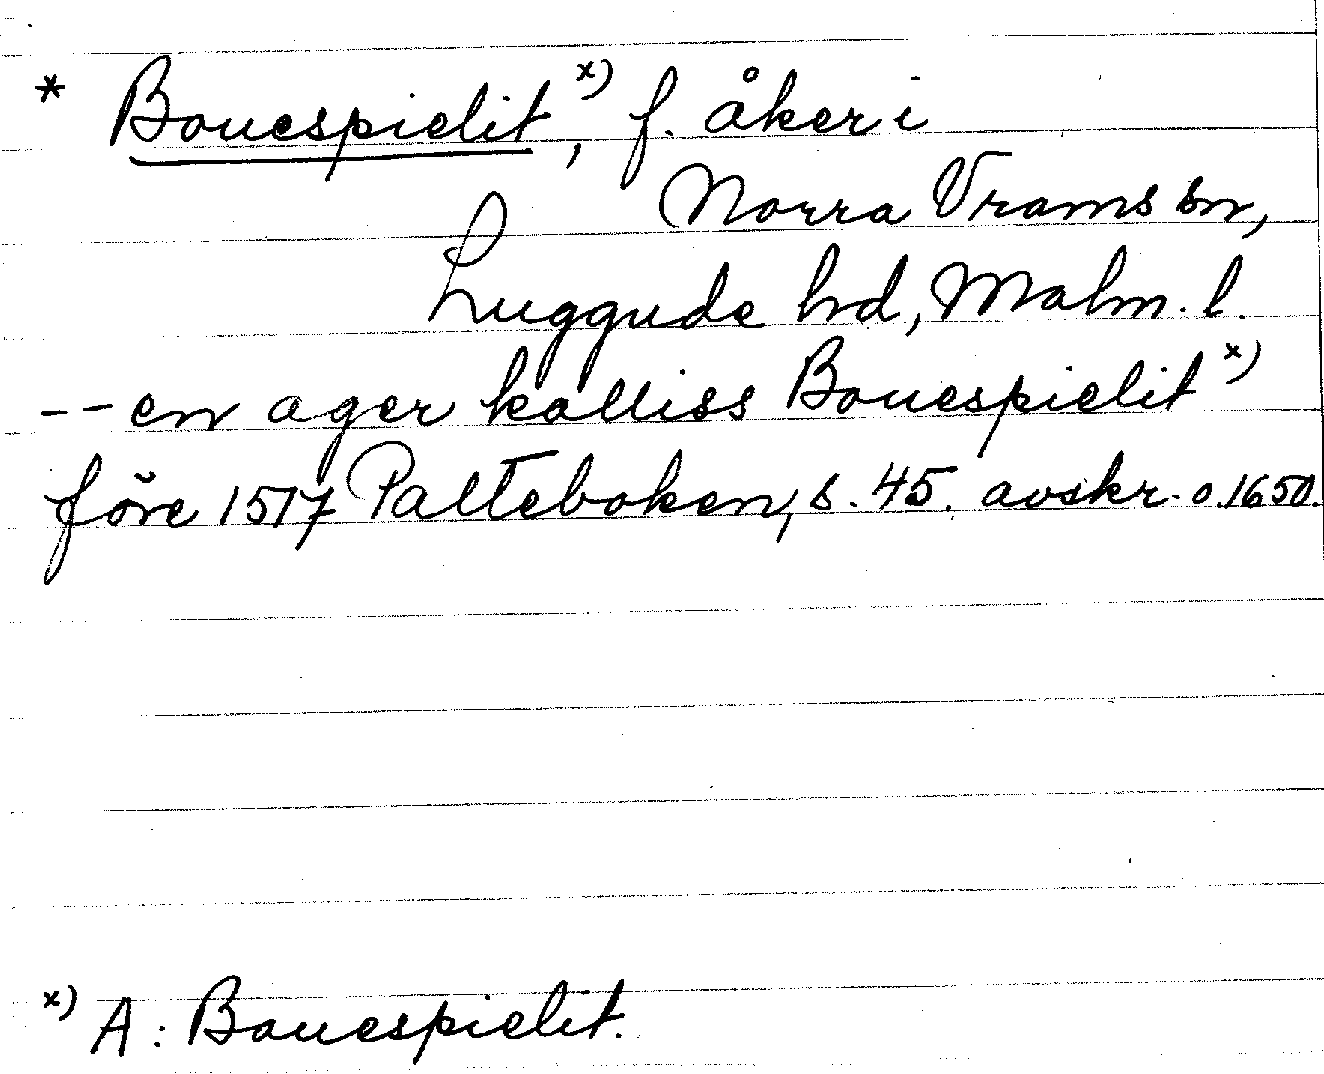 * Bouespielit,ˣ⁾ f. åker i
Norra Vrams sn,
Luggude hd, Malm. l.
-- en ager kalliss Bouespielitˣ⁾
före 1517 Palteboken, s. 45. avskr. o. 1650.
ˣ⁾ A: Bauespielit.